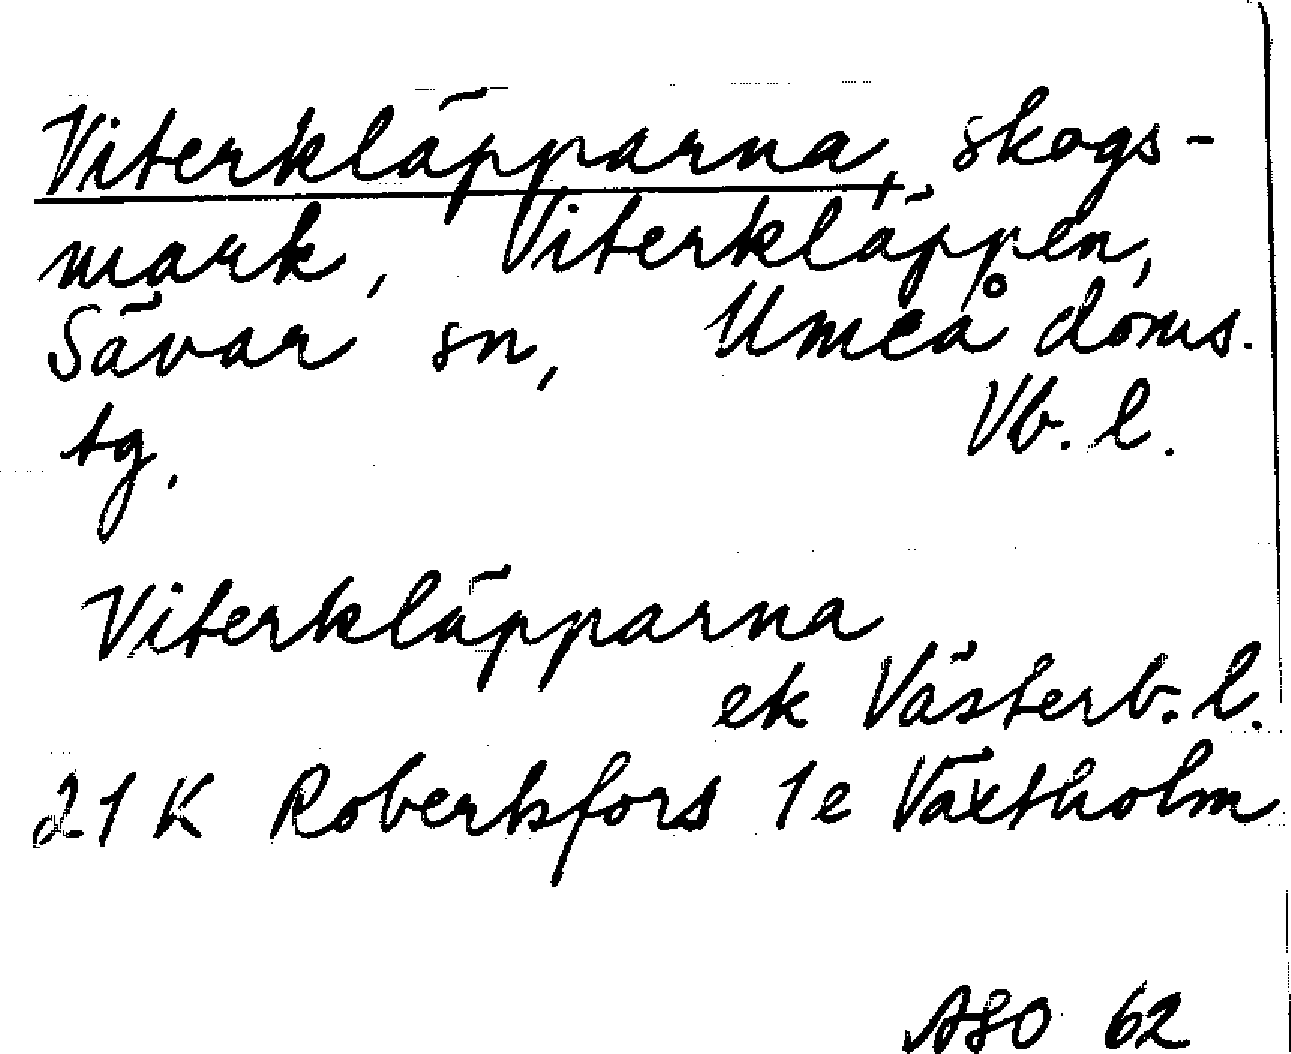 Viterkläpparna, skogs-
mark, Viterkläppen,
Sävar sn, Umeå doms.
tg. Vb. l.
Viterkläpparna
ek Västerb. l.
21 K Robertsfors 1e Växtholm
ASO 62